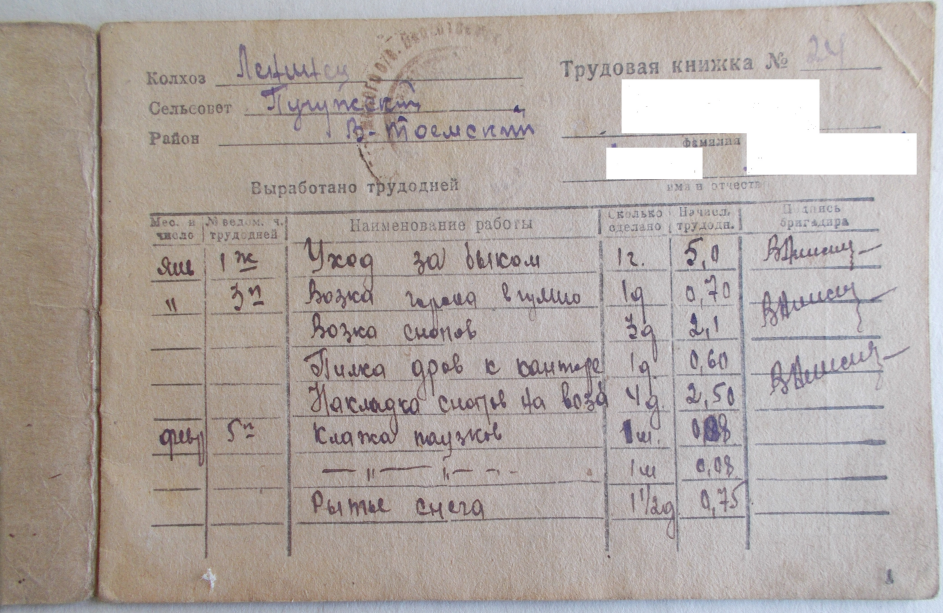 Колхоз Ленинец
Трудовая книжка № 24
Сельсовет Пучужский
Район В-Тоемский
фамилия
имя и отчеств
Выработано трудодней
Мес. и число № ведом. ч. трудодней Наименование работы Сколько сделано Начисл. трудодн. Подпись бригадира
Янв 1 Уход за быком 1г. 5,0
" 3 Возка гороха в гумно 1д 0,70
Возка снопов 3д 2,1
Пилка дров к канторе 1д 0,60
Накладка снопов на воза 4д. 2,50
февр 5 Кладка паузков 1ш. 0,08
— " — " — - - 1ш 0,08
Рытье снега 1 1/2д 0,75
1